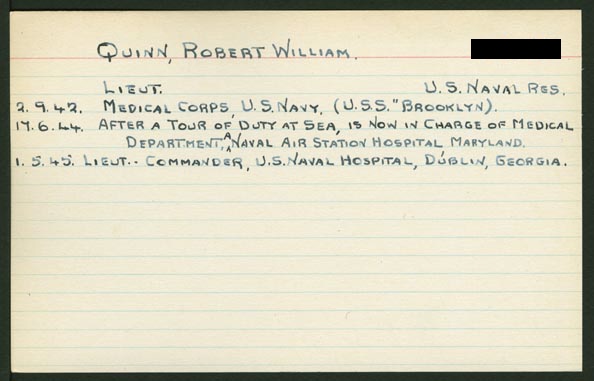 QUINN, ROBERT WILLIAM.
LIEUT. U.S. NAVAL RES.
2.9.42. MEDICAL CORPS, U.S. NAVY. (U.S.S. "BROOKLYN).
17.6.44. AFTER A TOUR OF DUTY AT SEA, IS NOW IN CHARGE OF MEDICAL
DEPARTMENT, A NAVAL AIR STATION HOSPITAL, MARYLAND.
1.5.45. LIEUT.. COMMANDER, U.S. NAVAL HOSPITAL, DUBLIN, GEORGIA.